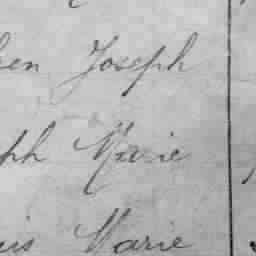 en Joseph
ph Marie
is Marie